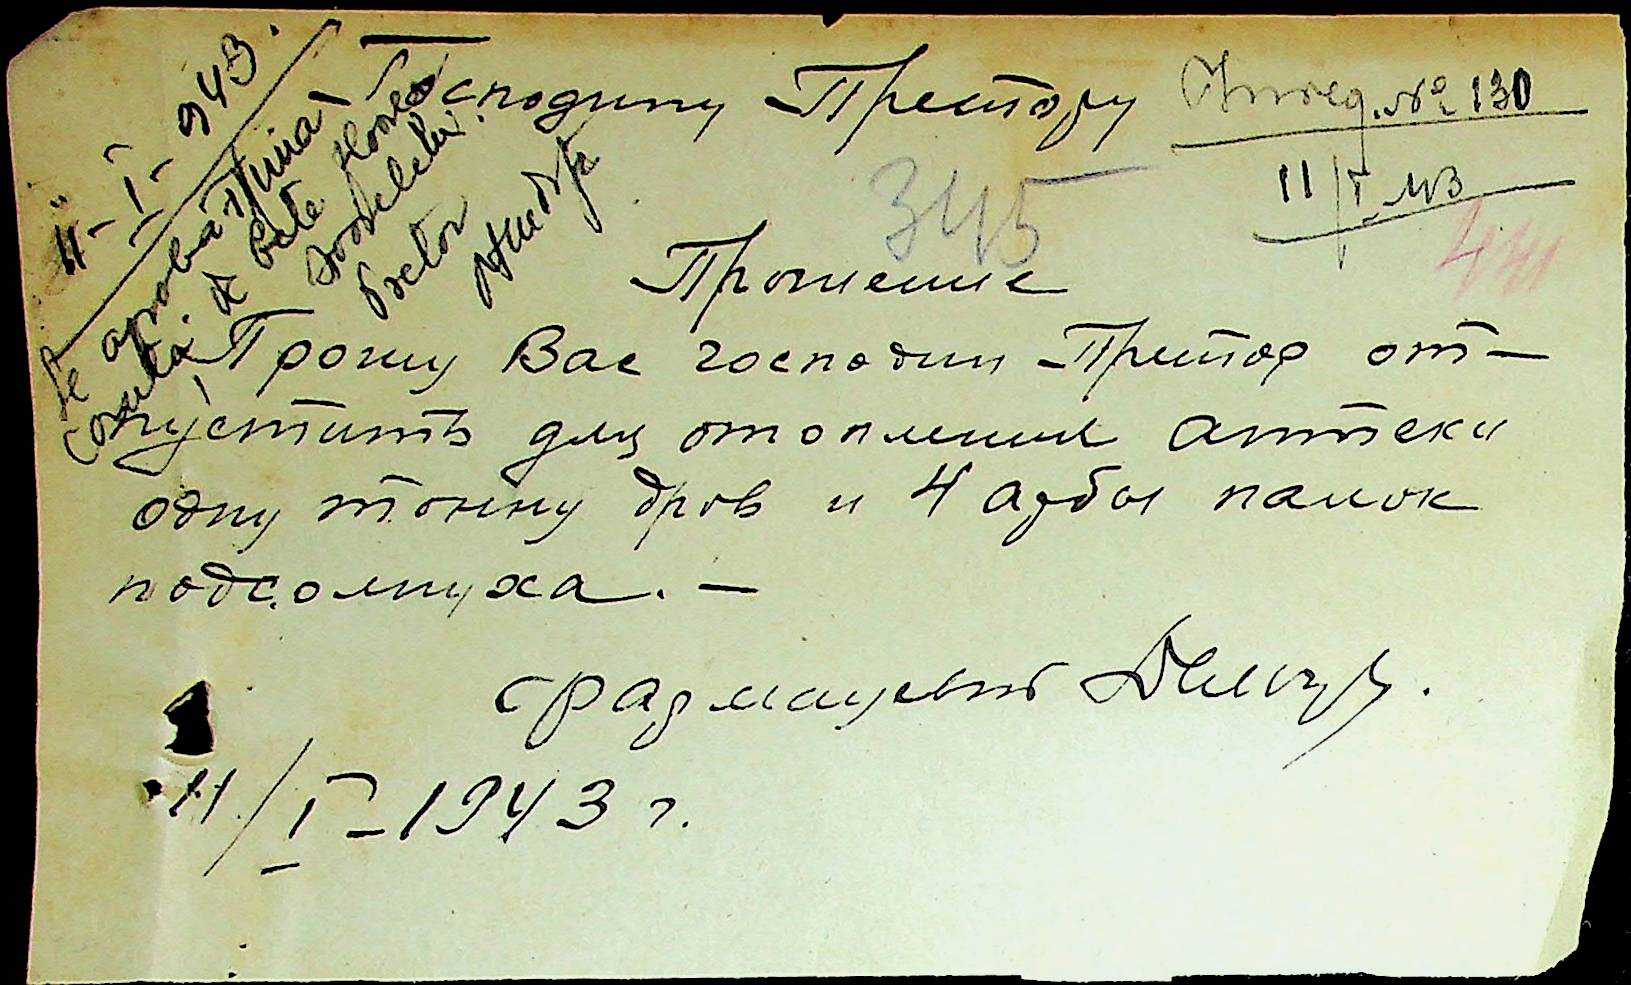 11-I-943.
Se aprobă
de bețe
Pretor
Господину Претору
№ 130
11/I 43
345
Прошение
Прошу Вас господин Претор от-
пустить для отопления аптеки
одну тонну дров и 4 арбы палок
подсолнуха. –
фармацевт
11/I-1943 г.